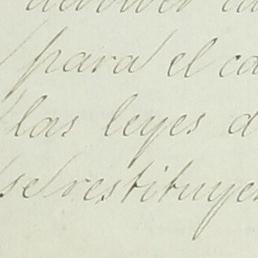 para el ca
las leyes d
se restituye